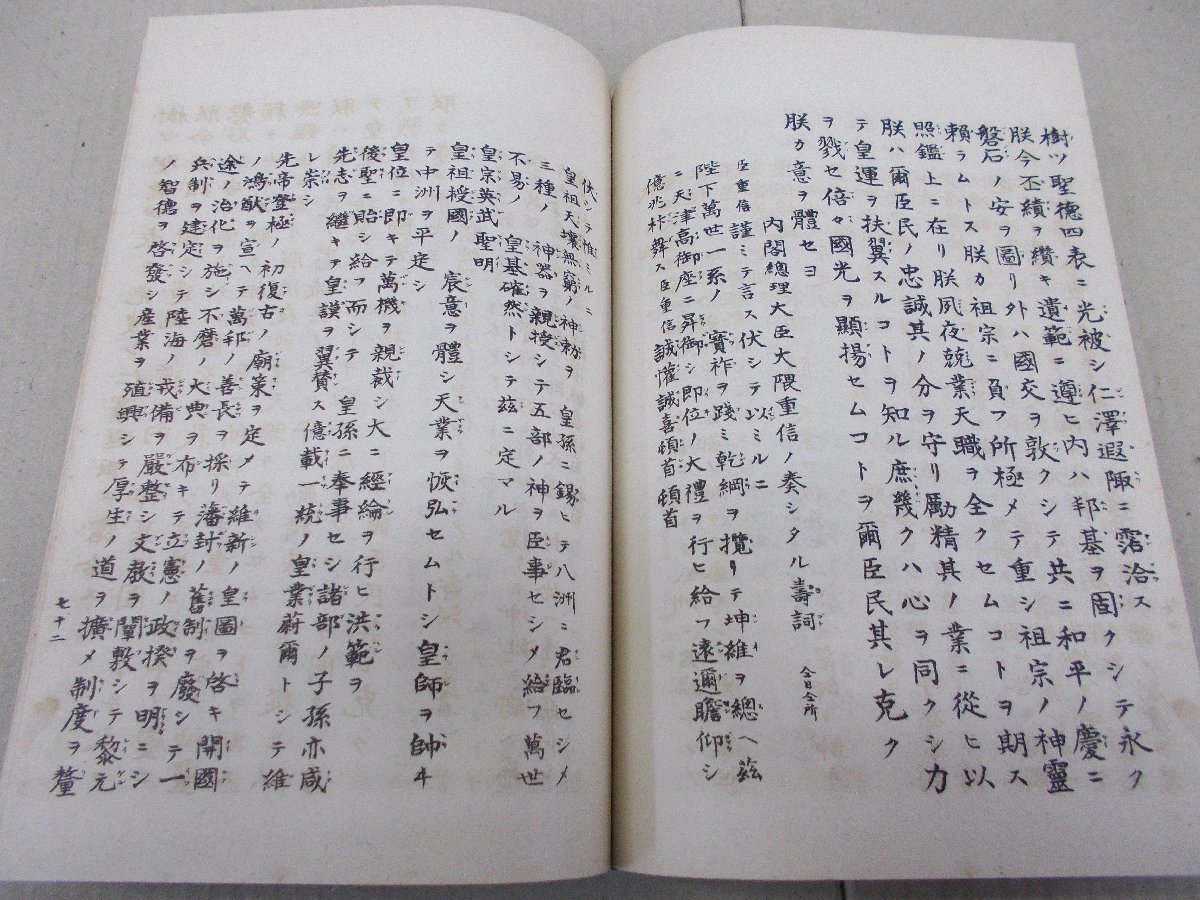 樹ツ聖德四表ニ光被シ仁澤遐陬ニ霑洽ス
朕今丕績ヲ纘キ遺範ニ遵ヒ內ハ邦基ヲ固クシテ永ク
磐石ノ安ヲ圖リ外ハ國交ヲ敦クシテ共ニ和平ノ慶ニ
賴ラムトス朕カ祖宗ニ負フ所極メテ重シ祖宗ノ神靈
照鑑上ニ在リ朕夙夜兢業天職ヲ全クセムコトヲ期ス
朕ハ爾臣民ノ忠誠其ノ分ヲ守リ勵精其ノ業ニ從ヒ以
テ皇運ヲ扶翼スルコトヲ知ル庶幾クハ心ヲ同クシ力
ヲ戮セ倍々國光ヲ顯揚セムコトヲ爾臣民其レ克ク
朕カ意ヲ體セヨ
內閣總理大臣大隈重信ノ奏シタル壽詞 仝日仝所
臣重信謹ミテ言ス伏シテ以ミルニ
陛下萬世一系ノ寶祚ヲ踐ミ乾綱ヲ攬リテ坤維ヲ總ヘ茲
ニ天津高御座ニ昇御シ卽位ノ大禮ヲ行ヒ給フ遠邇瞻仰シ
億兆抃舞ス臣重信誠懽誠喜頓首頓首
伏シテ惟ミルニ
皇祖天壤無窮ノ神勅ヲ 皇孫ニ錫ヒテ八洲ニ君臨セシメ
三種ノ 神器ヲ親授シテ五部ノ神ヲ臣事セシメ給フ萬世
不易ノ 皇基確然トシテ茲ニ定マル
皇宗英武聖明
皇祖授國ノ 宸意ヲ體シ天業ヲ恢弘セムトシ皇師ヲ帥ヰ
テ中洲ヲ平定シ
皇位ニ卽キテ萬機ヲ親裁シ大ニ經綸ヲ行ヒ洪範ヲ
後聖ニ貽シ給フ而シテ 皇孫ニ奉事セシ諸部ノ子孫亦咸
先志ヲ繼キテ皇謨ヲ翼贊ス億載一統ノ皇業蔚爾トシテ維
レ崇シ
先帝登極ノ初復古ノ廟策ヲ定メテ維新ノ皇圖ヲ啓キ開國
ノ鴻猷ヲ宣ヘテ萬邦ノ善長ヲ採リ藩封ノ舊制ヲ廢シテ一
途ノ治化ヲ施シ不磨ノ大典ヲ布キテ立憲ノ政揆ヲ明ニシ
兵制ヲ建定シテ陸海ノ戎備ヲ嚴整シ文敎ヲ闡敷シテ黎元
ノ智德ヲ啓發シ產業ヲ殖興シテ厚生ノ道ヲ擴メ制度ヲ釐
七十二